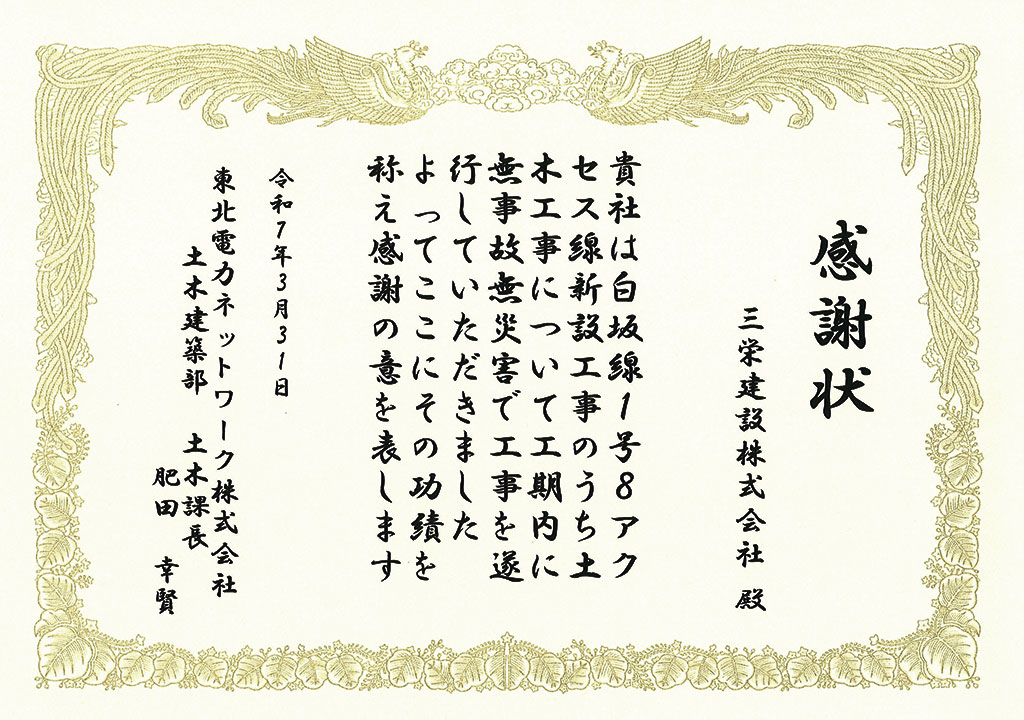 感謝状
三栄建設株式会社 殿
貴社は白坂線1号8アク
セス線新設工事のうち土
木工事について工期内に
無事故無災害で工事を遂
行していただきました
よってここにその功績を
称え感謝の意を表します
令和7年3月31日
東北電力ネットワーク株式会社
土木建築部 土木課長
肥田 幸賢